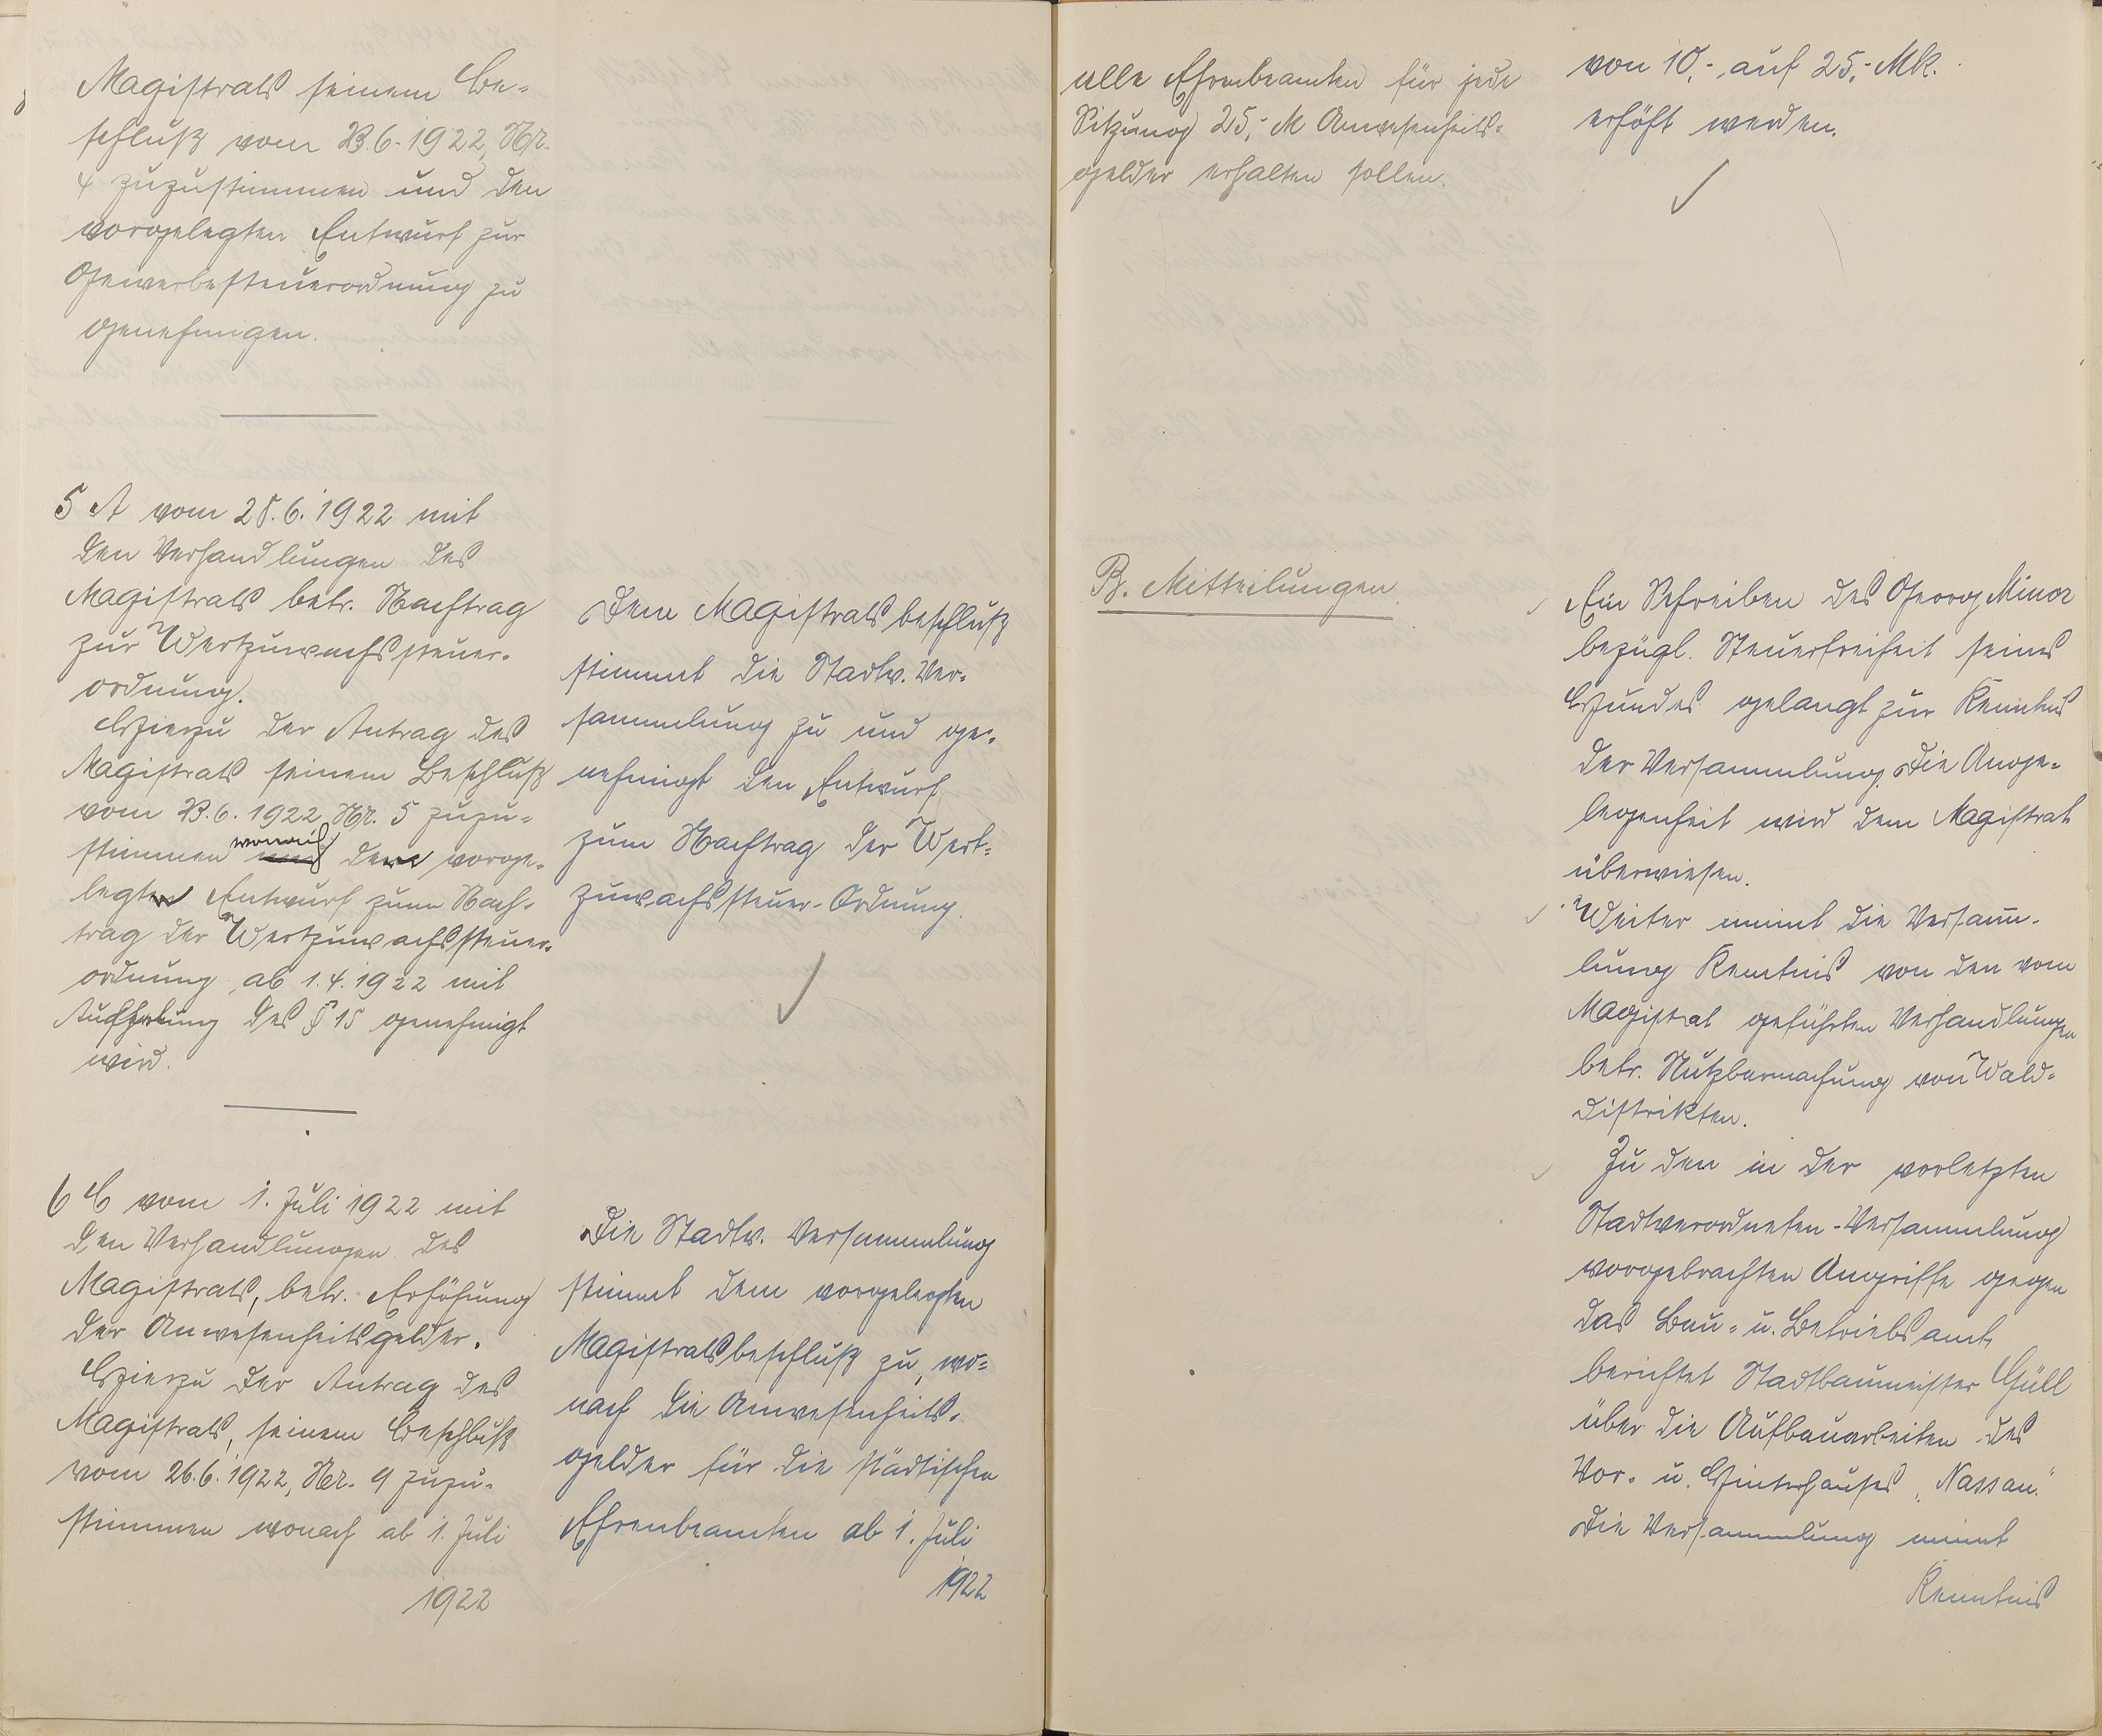 Magistrats seinem Be-
schluß vom 23.6.1922, Nr.
4 zuzustimmen und den
vorgelegten Entwurf zur
Gewerbesteuerordnung zu
genehmigen.
5 A vom 28.6.1922 mit
den Verhandlungen des
Magistrats betr. Nachtrag
zur Wertzuwachssteuer-
ordnung.
Hierzu der Antrag des
Magistrats seinem Beschluß
vom 23.6.1922, Nr. 5 zuzu-
stimmen wonach der vorge-
legte Entwurf zum Nach-
trag der Wertzuwachssteuer-
ordnung ab 1.4.1922 mit
des § 15 genehmigt
wird.
6 C vom 1. Juli 1922 mit
den Verhandlungen des
Magistrats, betr. Erhöhung
der Anwesenheitsgelder.
Hierzu der Antrag des
Magistrats, seinem Beschluß
vom 26.6.1922, Nr. 9 zuzu-
stimmen wonach ab 1. Juli
1922
Dem Magistratsbeschluß
stimmt die Stadtv. Ver-
sammlung zu und ge-
nehmigt den Entwurf
zum Nachtrag der Wert-
zuwachssteuer-Ordnung.
Die Stadtv. Versammlung
stimmt dem vorgelegten
Magistratsbeschluß zu, wo-
nach die Anwesenheits-
gelder für die städtischen
Ehrenbeamten ab 1. Juli
1922
alle Ehrenbeamten für jede
Sitzung 25,- M Anwesenheits-
gelder erhalten sollen.
B. Mitteilungen.
von 10,- auf 25,- Mk.
erhöht werden.
Ein Schreiben des Georg Minor
bezügl. Steuerfreiheit seines
Hundes gelangt zur Kenntnis
der Versammlung. Die Ange-
legenheit wird dem Magistrat
überwiesen.
Weiter nimmt die Versamm-
lung Kenntnis von den vom
Magistrat geführten Verhandlungen
betr. Nutzbarmachung von Wald-
distrikten.
Zu den in der vorletzten
Stadtverordneten-Versammlung
vorgebrachten Angriffe gegen
das Bau- u. Betriebsamt
berichtet Stadtbaumeister Güll
über die Aufbauarbeiten des
Vor- u. Hinterhauses „Nassau."
Die Versammlung nimmt
Kenntnis